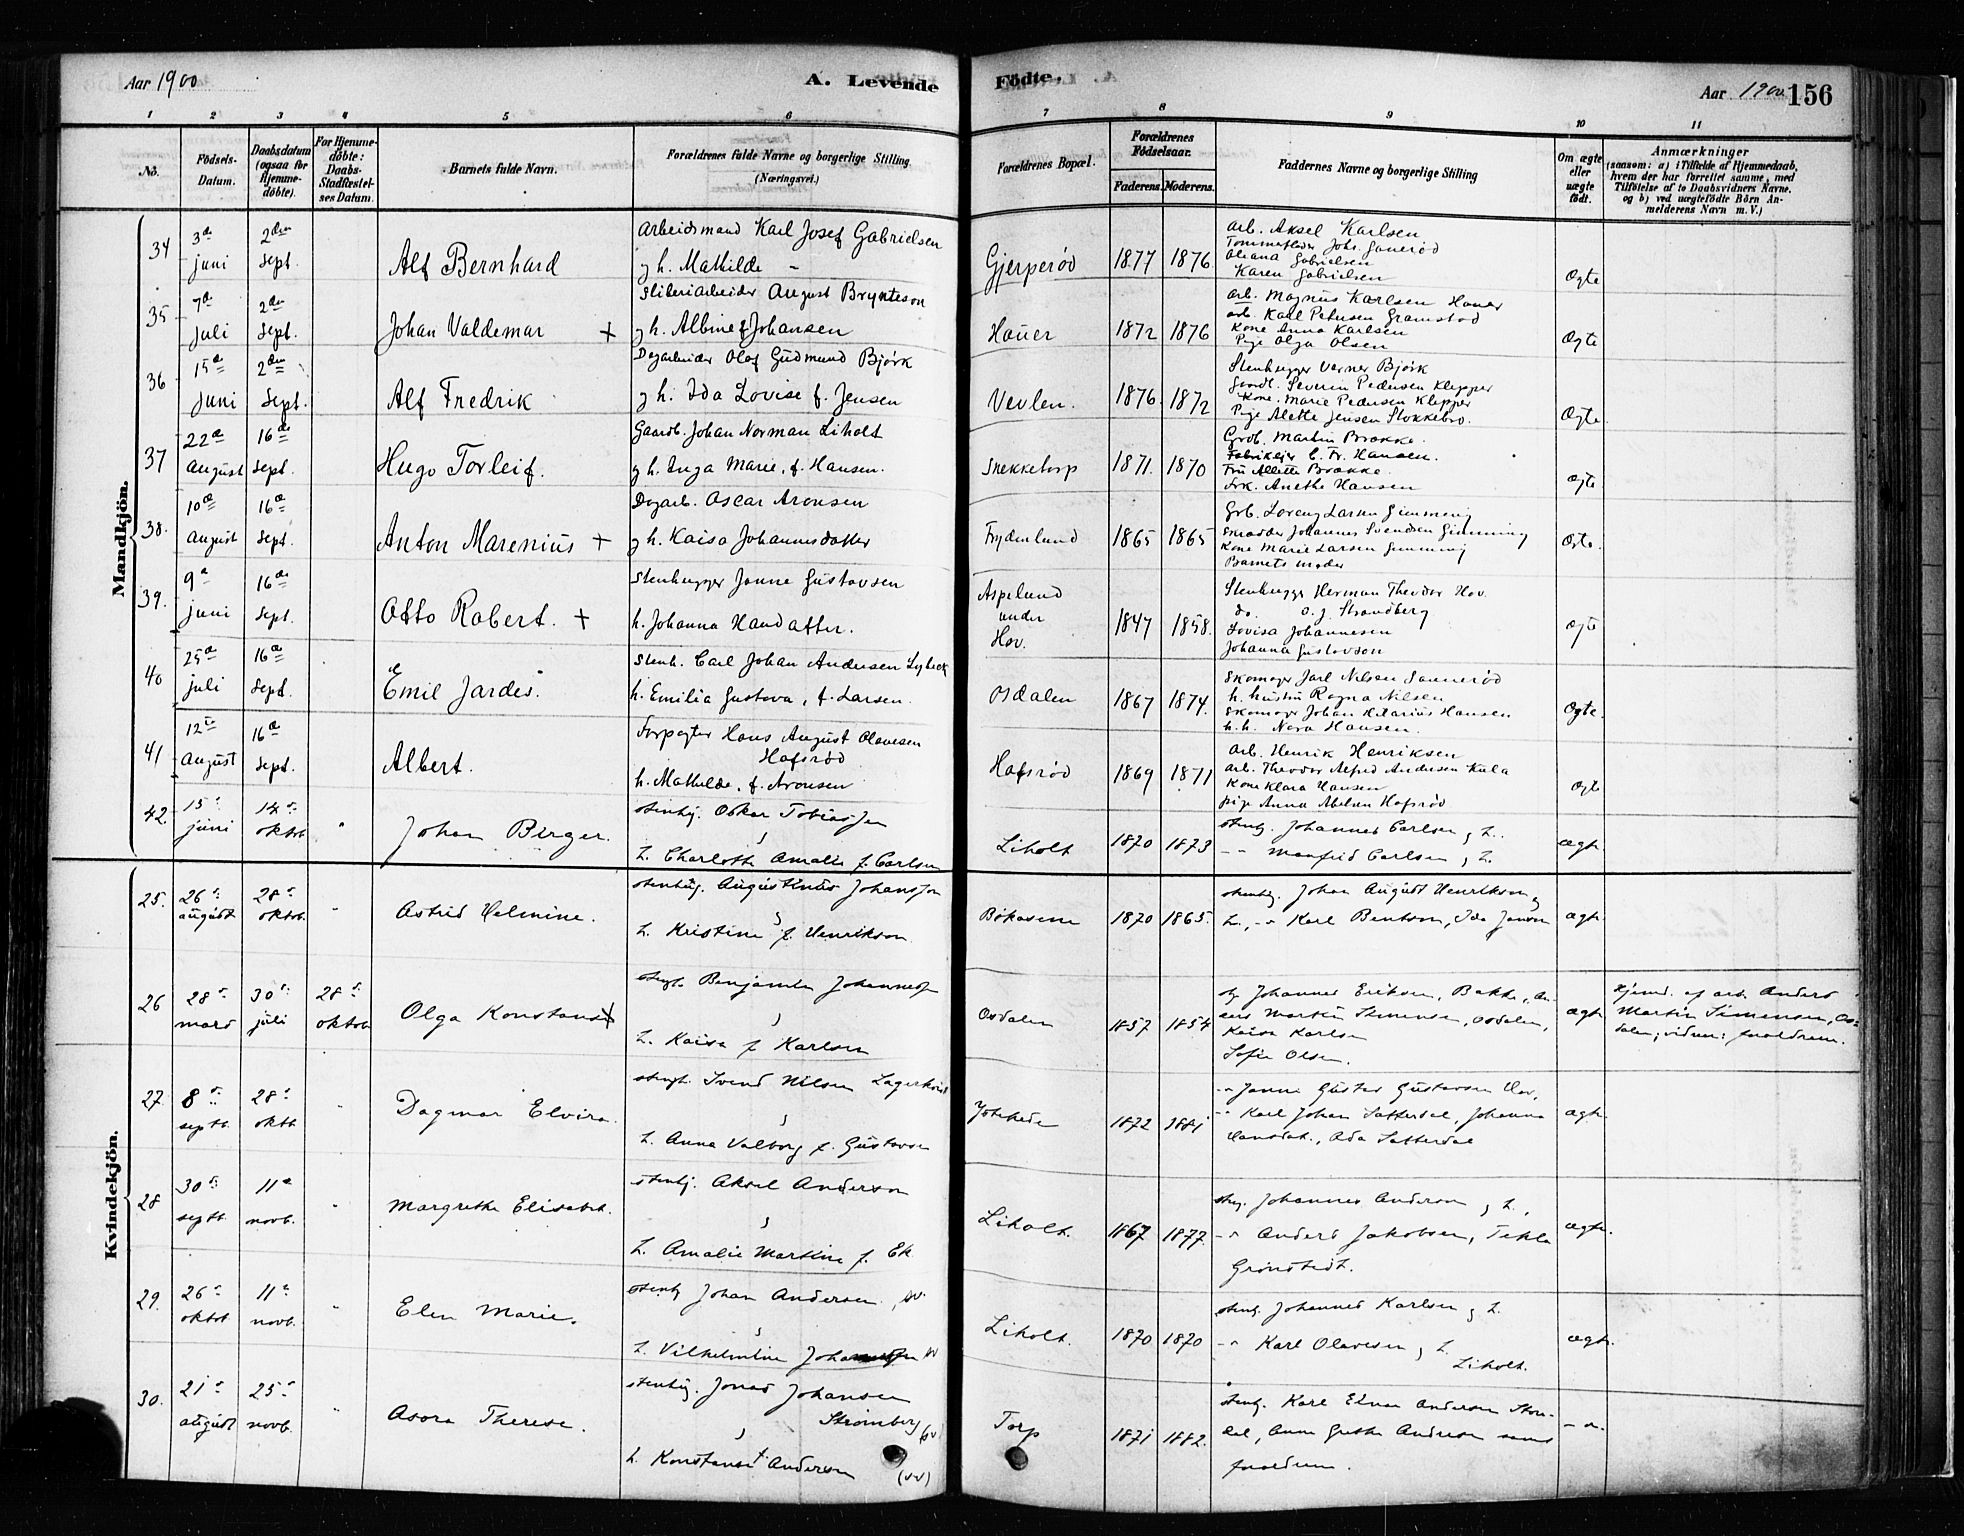 Aar 1900
A. Levende
Fødte.
Aar 1900
156
1 2 3 4 5 6 7 8 9 10 11
No.
Fødsels-
Datum.
Daabsdatum
(ogsaa for
Hjemme-
døbte).
For Hjemme-
døbte:
Daabs-
Stadfæstel-
ses Datum.
Barnets fulde Navn.
Forældrenes fulde Navne og borgerlige Stilling.
(Næringsvei.)
Forældrenes Bopæl.
Forældrenes
Fødselsaar.
Faderens. Moderens.
Faddernes Navne og borgerlige Stilling
Om ægte
eller
uægte
født.
Anmærkninger
(saasom: a) i Tilfælde af Hjemmedaab,
hvem der har forrettet samme, med
Tilføielse af to Daabsvidners Navne.
og b) ved uægtefødte Børn An-
melderens Navn m. V.)
Mandkjön.
34
3de juni
2den Sept.
Alf Bernhard
Arbeidsmand Karl Josef Gabrielsen
g h. Mathilde -
Gjerperød
1877 1876
Arb. Aksel Karlsen
Tømmerfløder Johs. Ganerød
Oleana Gabrielsen
Karen Gabrielsen
Ægte
35
7de juli
2den Sept.
Johan Valdemar +
Sliberiarbeider August Brynteson
g h. Albine f Johansen
Hauer
1872 1876
Arb. Magnus Karlsen Hauer
arb. Karl Petersen Gramstad
Kone Anna Karlsen
Pige Olga Olsen
Ægte
36
15de juni
2den Sept.
Alf Fredrik
Dagarbeider Olaf Gudmund Bjørk
g h. Ida Lovise f. Jensen
Vevlen.
1876 1872
Stenhugger Verner Bjørk
Gaardb. Severin Pedersen Klepper
Kone Marie Pedersen Klepper
Pige Alette Jensen Stokkebro.
Ægte.
37
22de august
16de Sept.
Hugo Torleif.
Gaardb. Johan Norman Liholt
g h. Inga Marie, f. Hansen.
Snekketorp
1871. 1870
Grdb. Martin Brække.
Fabrikeier C. Fr. Hansen.
Fru Allette Brække.
Frk. Anethe Hansen
Ægte
38.
10de August
16de Sept.
Anton Marenius +
Dagarb. Oscar Aronsen
g h. Kaisa Johannesdatter
Frydenlund
1865 1865
Grb. Lorenz Larsen Gimming
Skrædder Johannes Svendsen Gimming
Kone Marie Larsen Gimming
Barnets moder
Ægte.
39.
9de juni
16de Sept.
Otto Robert. +
Stenhugger Janne Gustavsen
h. Johanna Hansdatter.
Aspelund
under
Hov.
1847 1858.
Stenhugger Herman Theodor Hov.
do. O. J. Strandberg
Lovisa Johannesen
Johanna Gustavsen
Ægte
40
25de juli
16de Sept.
Emil Jardes.
Stenh. Carl Johan Andersen Lybeck
h. Emilia Gustava, f. Larsen.
Osdalen
1867 1874.
Skomager Jarl Nilsen Sannerød
h. hustru Ragna Nilsen
Skomager Johan Hilarius Hansen
h. h. Nora Hansen.
Ægte.
41
12te August
16de Sept.
Albert.
Forpagter Hans August Olavesen
Hafsrød
h. Mathilde, f. Aronsen
Hafsrød
1869 1871
Arb. Henrik Henriksen
Arb. Theodor Alfred Andersen Kula
Kone Klara Hansen
pige Anna Abelsen Hafsrød
Ægte
42.
15. juni
14. oktob
Johan Birger.
stenhg. Oskar Tobiassen
g
h. Charlotte Amalie f. Carlsen
Liholt
1870 1873
stenhg. Johannes Carlsen g h..
- " Manfred Carlsen g h.
ægte.
Kvindekjön.
25.
26. august
28. oktob
Astrid Helmine.
stenhug. Augustinus Johanssen
g
h. Kristine f. Henrikson
Bøkasene
1870 1865.
stenhg. Johan August Henrikson g
h., -" Karl Bentson, Ida Janson
ægte.
26
28. mars
30. juli
28. oktob
Olga Konstanse +
stenh. Benjamin Johannessen
g
h. Kaisa f Karlsen
Osdalen
1857 1854
stg. Johannes Eriksen, Bakke, An-
ders Martin Simensen, Osdalen,
Kaisa Karlsen
Sofie Olsen.
ægte.
Hjemd. af arb. Anders
Martin Simensen, Os-
dalen; vidner: forældrene.
27.
8. septb.
28. oktb
Dagmar Elvira.
stenh. Svend Nilsen Lagerkvist
g
h. Anna Valborg f. Gustavsen
1872 1881
-" Janne Gustav Gustavsen Hov,
-" Karl Johan Sætterdal, Johanna
Hansdat., Ada Sætterdal
ægte.
28
30. septb.
11. novb.
Margrethe Elisabet.
stenhg. Aksel Anderson
g
h. Amalie Martine f. Ek.
Liholt.
1867 1877.
stenhg. Johannes Anderson g h.,
-" Anders Jakobsen, Tekla
Grönstedt.
ægte.
29.
26. oktob
11. novb.
Elen Marie.
stenhg Johan Andersen
g
h. Vilhelmine
Liholt.
1870 1870
stenhg. Johannes Karlsen g h.
-" Karl Olavesen g h.
Liholt.
ægte.
30.
21. august
25. novb.
Asora Therese.
stenhug. Jonas Johansen
Strømberg
g
h. Konstanse Andersen
Torp
1871 1882.
stenhg. Karl Einar Andersen
Anne Grethe Andersen samt
forældrene.
- " -